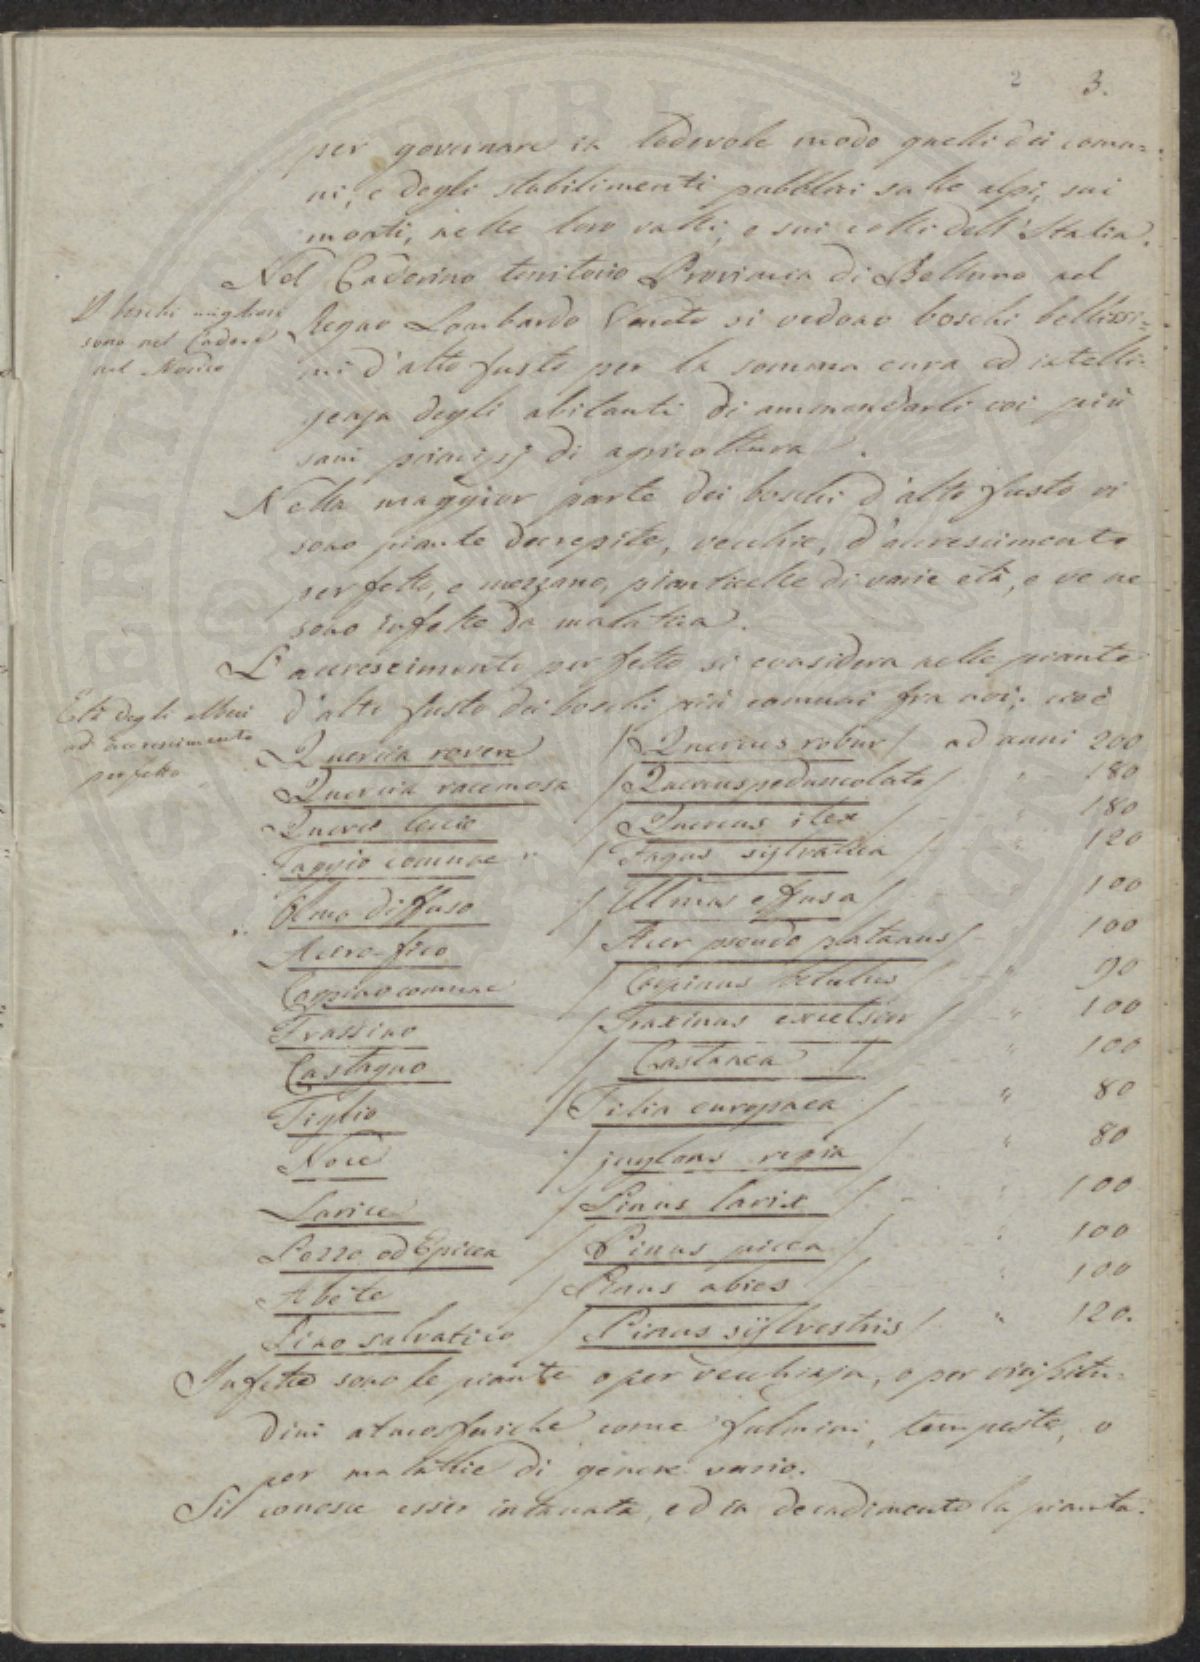 2 3.
per governare in lodevole modo quelli dei comu=
ni, e degli stabilimenti pubblici sulle alpi, sui
monti, nelle loro valli, e sui colli dell'Italia.
Nel Cadorino territorio Provincia di Belluno nel
I boschi migliori
sono nel Cadore
nel
Regno Lombardo Veneto si vedono boschi bellissi=
mi d'alto fusto per la somma cura ed intelli-
genza degli abitanti di ammendarli coi più
sani principj di agricoltura.
Nella maggior parte dei boschi d'alto fusto vi
sono piante decrepite, vecchie, d'accrescimento
perfetto, e mezzano, pianticelle di varie età, e ve ne
sono infette da malattia.
L'accrescimento perfetto si considera nelle piante
Età degli alberi
ad accrescimento
perfetto
d'alto fusto dei boschi più comuni fra noi; cioè
Quercia rovere /Quercus robur/ ad anni 200
Quercia racemosa /Quercus peduncolata/ " 180
Querce leccio /Quercus ilex/ " 180
Faggio comune /Fagus sylvatica/ " 120
Olmo diffuso /Ulmus effusa/ 100
Acero-fico /Acer pseudo platanus/ 100
Carpino comune /Carpinus betulus/ " 90
Frassino /Fraxinus excelsior/ " 100
Castagno /Castanea/ " 100
Tiglio /Tilia europaea/ " 80
Noce /juglans regia/ " 80
Larice /Pinus larix/ " 100
Pezzo od Epicea /Pinus picea/ " 100
Abete /Pinus abies/ " 100
Pino salvatico /Pinus sijlvestris/ " 120.
Infette sono le piante o per vecchiaja, o per vicissitu=
dini atmosferiche come fulmini, tempeste, o
per malattie di genere vario.
Si conosce esser intaccata, ed in decadimento la pianta.